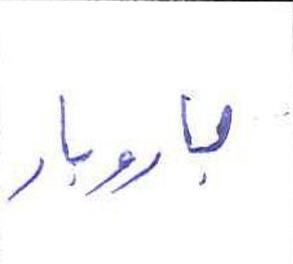 باروبار